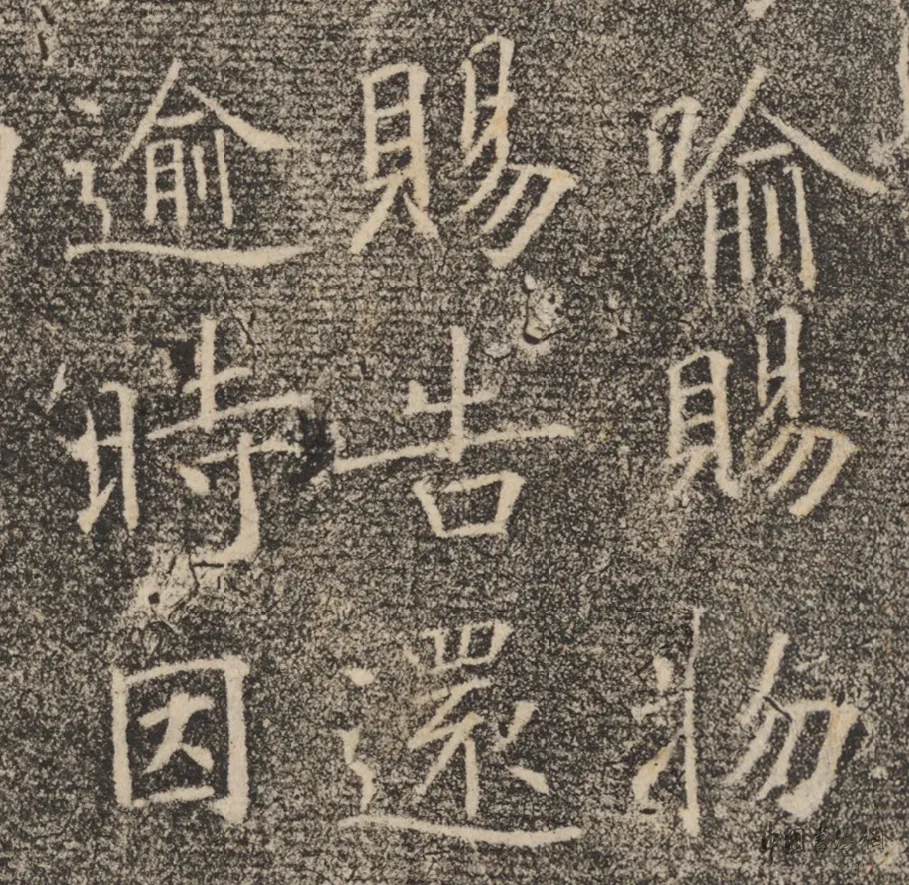 喻賜物
賜告還
逾時因